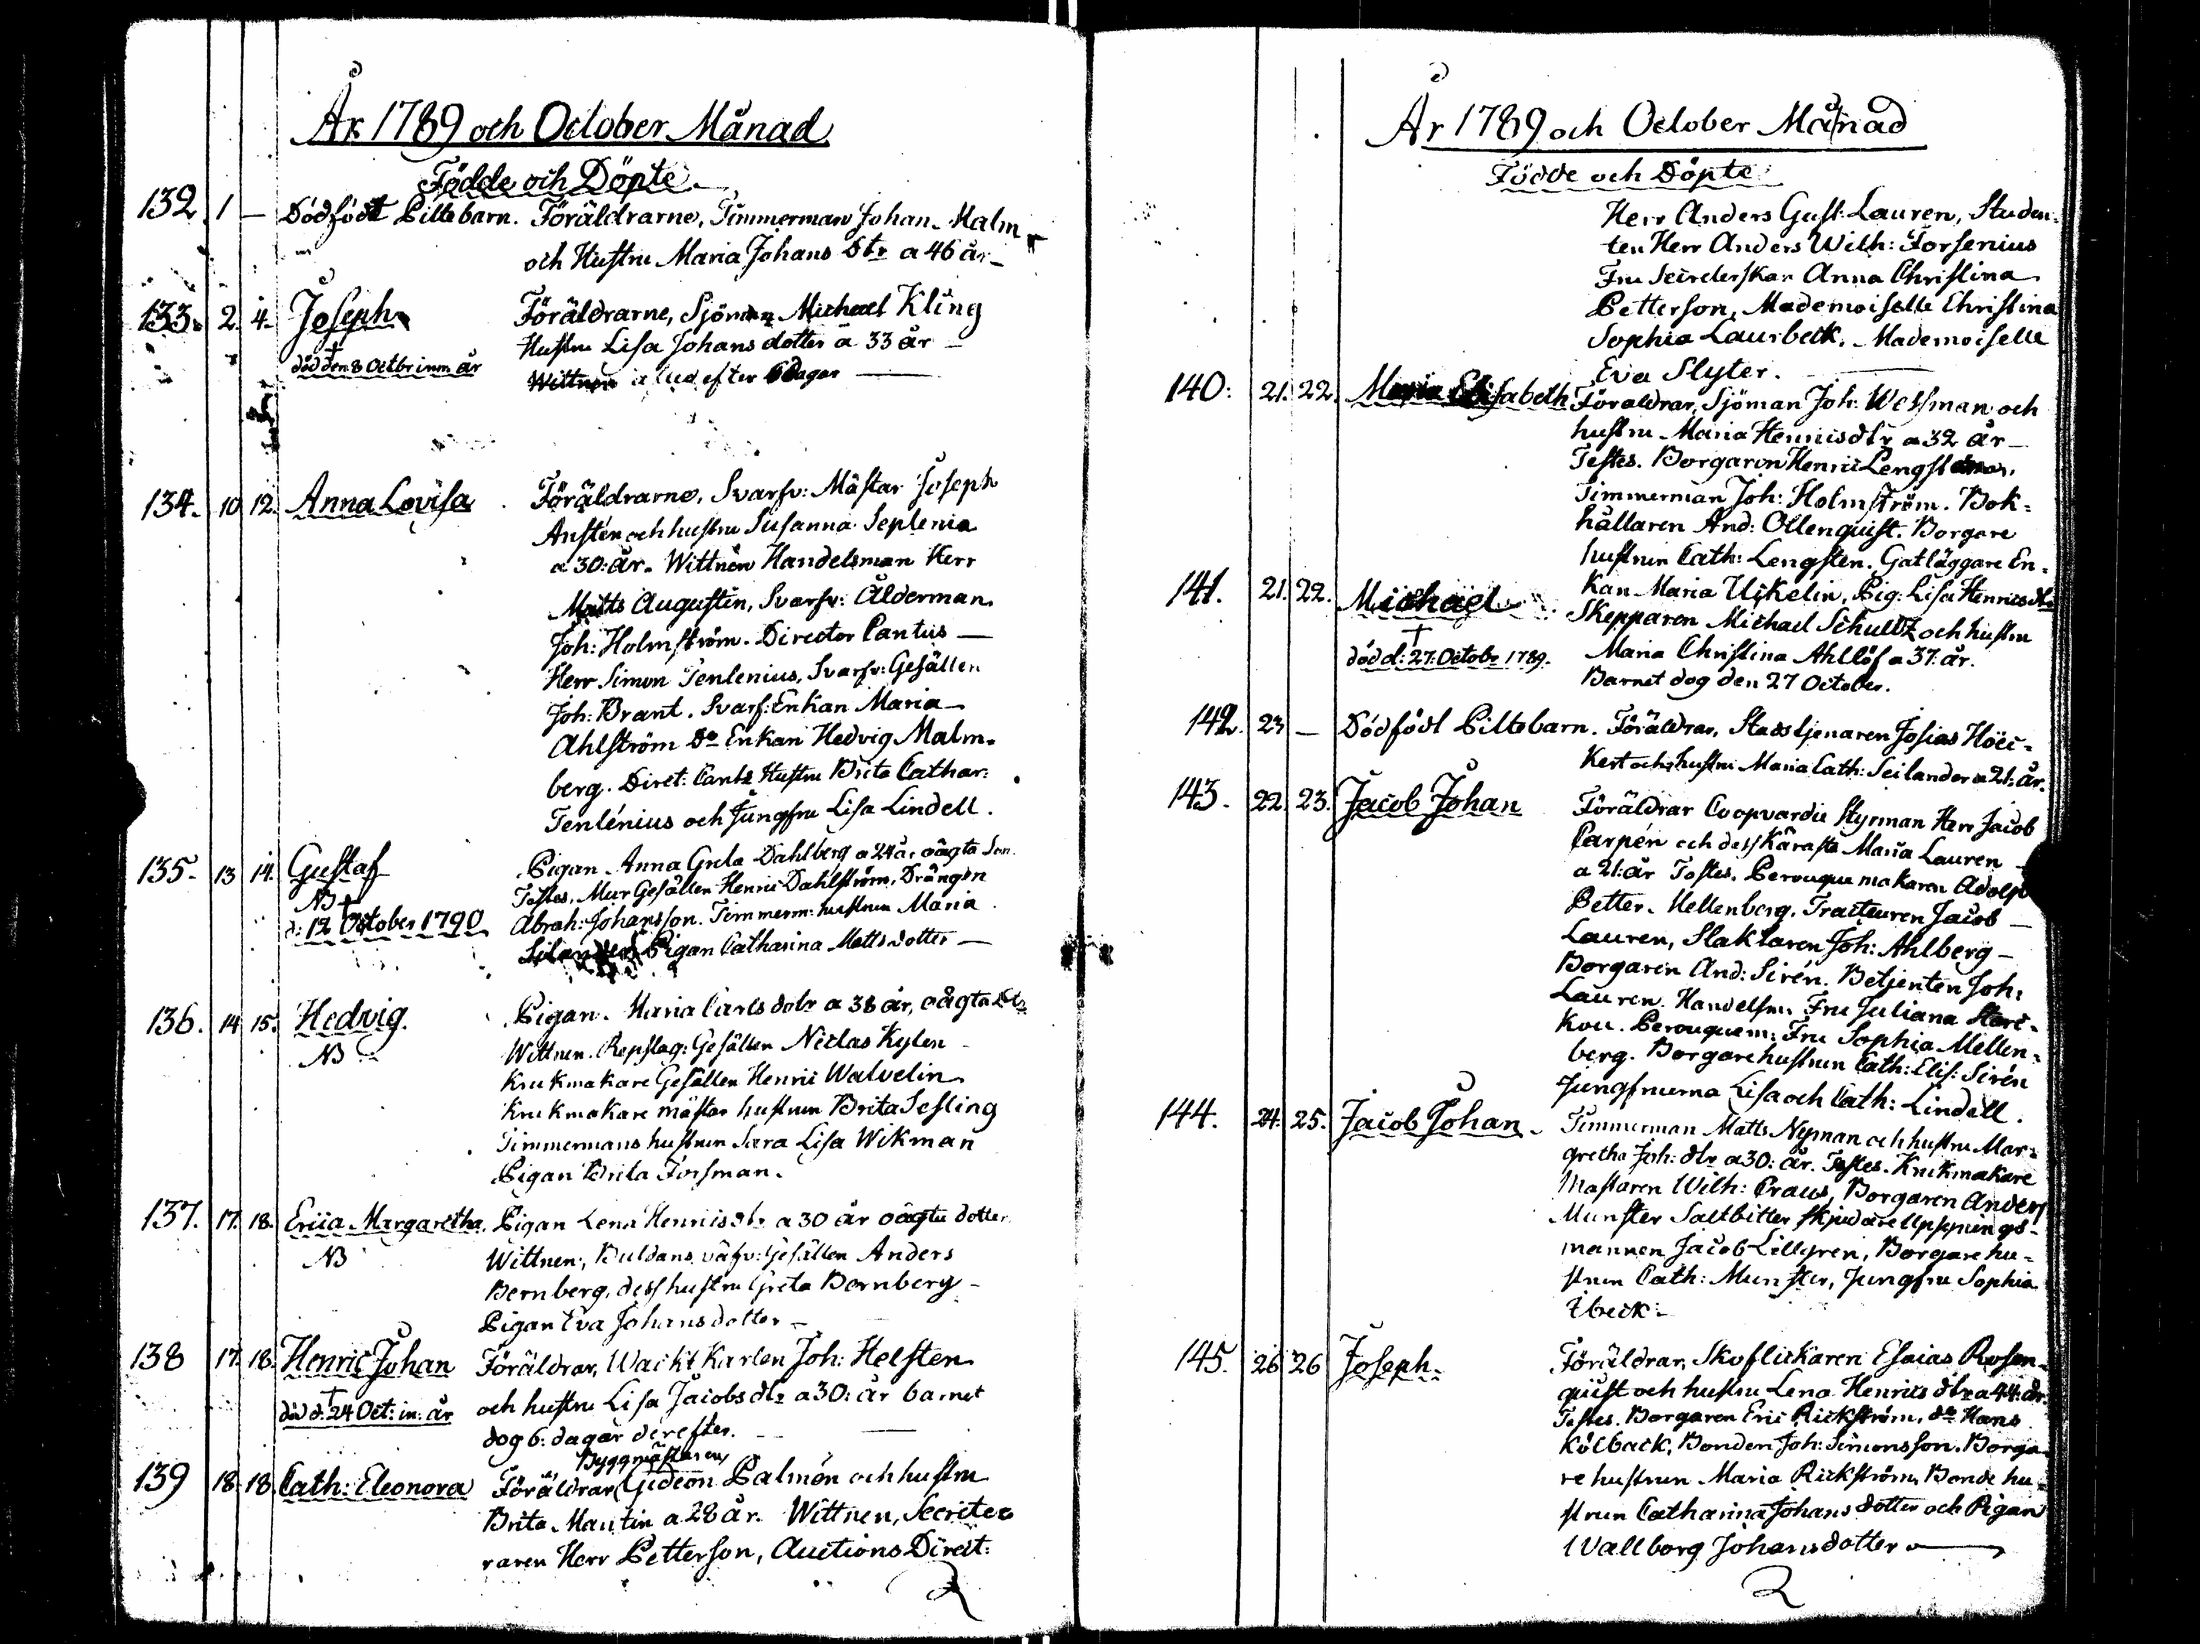 År 1789 och October Månad
Födde och Döpte
132. 1 — Dödfödt Piltebarn. Föräldrarne, Timmerman Johan Malm
och Hustru Maria Johans Dtr a 46 år
133. 2. 4. Joseph Föräldrarne, Sjöman Michael Kling
Hustru Lisa Johans dotter a 33 år
död den 8 Octbr inn. år
Wittnen efter dagar
134. 10 12. Anna Lovisa Föräldrarne, Svarfv: Mästar Joseph
Anstén och hustru Susanna Seplenia
a 30: år. Wittnen Handelsman Herr
Matts Augustin, Svarfv: Ålderman
Joh: Holmström. Director Cantus
Herr Simon Tenlenius, Svarfv: Gesällen
Joh: Brant. Svarf: Enkan Maria
Ahlström Do Enkan Hedvig Malm-
berg. Diret: Hustru Brita Cathar:
Tenlénius och Jungfru Lisa Lindell.
135. 13 14. Gustaf Pigan Anna Greta Dahlberg a 24 år oägta Son.
NB † Testes. Mur Gesällen Henric Dahlström, Drängen
d: 12 October 1790 Abrah: Johansson. Timmerm: hustrun Maria
Pigan Catharina Matts dotter
136. 14 15. Hedvig. Pigan Maria Carls dotr a 38 år, oägta Dtr
NB Wittnen. Repslag: Gesällen Niclas Kylen
Krukmakare Gesällen Henric Walvelin
Krukmakare mästar hustrun Brita Sesling
Timmermans hustrun Sara Lisa Wikman
Pigan Brita Forsman.
137. 17. 18. Erica Margaretha Pigan Lena Henricsdtr a 30 år oägta dotter
NB Wittnen, Buldans väfv: Gesällen Anders
Bernberg, dess hustru Greta Bernberg
Pigan Eva Johans dotter
138 17. 18. Henric Johan Föräldrar, Wackt Karlen Joh: Helsten
† och hustru Lisa Jacobs dtr a 30: år barnet
död d. 24 Oct: in: år
dog 6: dagar derefter.
Byggmästaren
139 18. 18. Cath: Eleonora Föräldrar Gideon Palmén och hustru
Brita Mantin a 28 år. Wittnen, Secrete-
raren Herr Petterson, Auctions Direct:
År 1789 och October Månad
Födde och Döpte
Herr Anders Gust: Lauren, Studen-
ten Herr Anders Wilh: Forsenius
Fru Secreterskan Anna Christina
Petterson, Mademoiselle Christina
Sophia Laurbeck, Mademoiselle
Eva Slyter.
140: 21. 22. Maria Elisabeth Föräldrar, Sjöman Joh: Wessman och
hustru Maria Henricsdtr a 32 år
Testes. Borgaren Henric Lengsten
Timmerman Joh: Holmström. Bok-
hållaren And: Ollenquist. Borgare
hustrun Cath: Lengsten. Gatläggare En-
kan Maria Uikelin, Pig: Lisa Henricsdtr
141. 21. 22. Michael Skepparen Michael Schultz och hustru
† Maria Christina Ahllöf a 37: år.
död d: 27. Octobr 1789. Barnet dog den 27 October.
142. 23 — Dödfödt Piltebarn. Föräldrar, Stadstjenaren Josias Höec-
kert och hustru Maria Cath: Seilander a 21: år.
143. 22. 23. Jacob Johan Föräldrar Coopvardie Styrman Herr Jacob
Carpén och dess Kärasta Maria Lauren
a 21: år Testes. Perouque makaren Adolph
Petter Mellenberg. Tracteuren Jacob
Lauren, Slaktaren Joh: Ahlberg
Borgaren And: Sirén. Betjenten Joh:
Lauren. Handelsm: Fru Juliana
Perouquem: Fru Sophia Mellen-
berg. Borgare hustrun Cath: Elis: Sirén
Jungfruerna Lisa och Cath: Lindell.
144. 24. 25. Jacob Johan Timmerman Matts Nyman och hustru Mar-
gretha Joh: dtr a 30: år. Testes. Krukmakare
Mästaren Wilh: Braus, Borgaren Anders
Munster Saltbitter skjudare Uppsynings-
mannen Jacob Lillgren, Borgare hu-
strun Cath: Munster, Jungfru Sophia
Ibeck
145. 26 26 Joseph Föräldrar, Skoflickaren Esaias Rosen-
quist och hustru Lena Henrics dtr a 44: år.
Testes. Borgaren Eric Rickström, do Hans
Kölback, Bonden Joh: Simonsson. Borga-
re hustrun Maria Rickström Bonde hu-
strun Catharina Johans dotter och Pigan
Wallborg Johansdotter